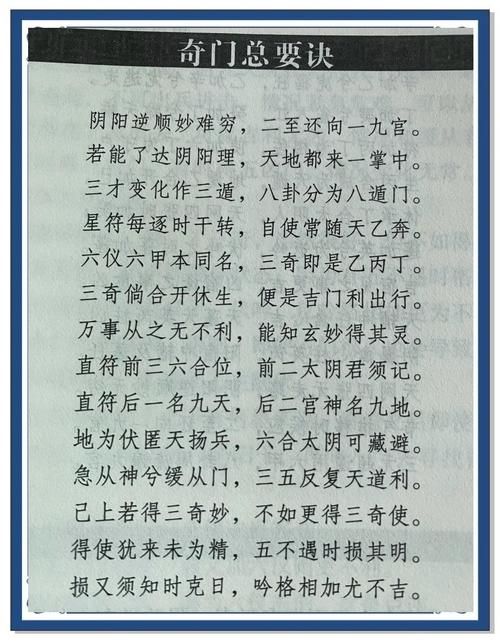 奇门总要诀
阴阳逆顺妙难穷，二至还向一九宫。
若能了达阴阳理，天地都来一掌中。
三才变化作三遁，八卦分为八遁门。
星符每逐时干转，自使常随天乙奔。
六仪六甲本同名，三奇即是乙丙丁。
三奇倘合开休生，便是吉门利出行。
万事从之无不利，能知玄妙得其灵。
直符前三六合位，前二太阴君须记。
直符后一名九天，后二宫神名九地。
地为伏匿天扬兵，六合太阴可藏避。
急从神兮缓从门，三五反复天道利。
己上若得三奇妙，不如更得三奇使。
得使犹来未为精，五不遇时损其明。
损又须知时克日，吟格相加尤不吉。